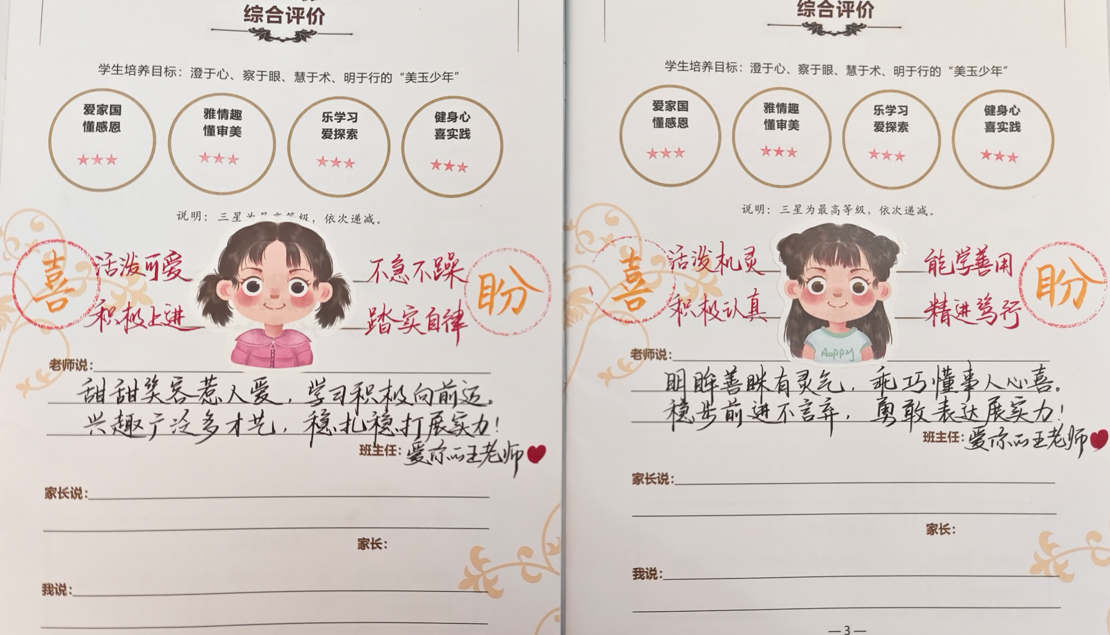 综合评价
学生培养目标：澄于心、察于眼、慧于术、明于行的“美玉少年”
爱家国
懂感恩
雅情趣
懂审美
乐学习
爱探索
健身心
喜实践
说明：三星为最高等级，依次递减。
喜
活泼可爱
积极上进
不急不躁
踏实自律
盼
老师说：
甜甜笑容惹人爱，学习积极向前迈。
兴趣广泛多才艺，稳扎稳打展实力！
班主任：爱你的王老师
家长说：
家长：
我说：
综合评价
学生培养目标：澄于心、察于眼、慧于术、明于行的“美玉少年”
爱家国
懂感恩
雅情趣
懂审美
乐学习
爱探索
健身心
喜实践
说明：三星为最高等级，依次递减。
喜
活泼机灵
积极认真
能学善用
精进笃行
盼
Aappy
老师说：
明眸善睐有灵气，乖巧懂事人心喜。
稳步前进不言弃，勇敢表达展实力！
班主任：爱你的王老师
家长说：
家长：
我说：
—3—